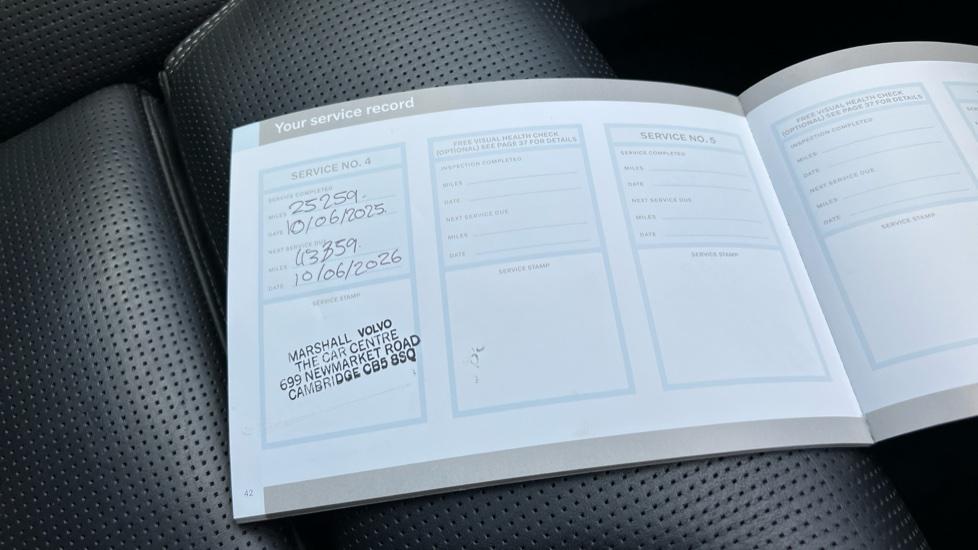 Your service record
SERVICE NO. 4
SERVICE COMPLETED
MILES 25259.
DATE 10/06/2025.
NEXT SERVICE DUE
MILES 43359.
DATE 10/06/2026
SERVICE STAMP
MARSHALL VOLVO
THE CAR CENTRE
699 NEWMARKET ROAD
CAMBRIDGE CB5 8SQ
42
FREE VISUAL HEALTH CHECK
(OPTIONAL) SEE PAGE 37 FOR DETAILS
INSPECTION COMPLETED
MILES
DATE
NEXT SERVICE DUE
MILES
DATE
SERVICE STAMP
SERVICE NO. 5
SERVICE COMPLETED
MILES
DATE
NEXT SERVICE DUE
MILES
DATE
SERVICE STAMP
FREE VISUAL HEALTH CHECK
(OPTIONAL) SEE PAGE 37 FOR DETAILS
INSPECTION COMPLETED
MILES
DATE
NEXT SERVICE DUE
MILES
DATE
SERVICE STAMP